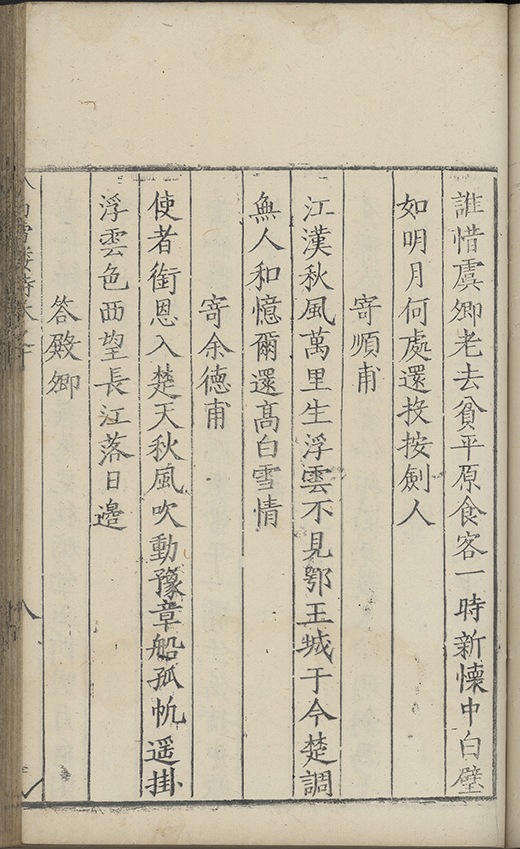 誰惜虞卿老去貧平原食客一時新懷中白璧
如明月何處還投按劍人
寄順甫
江漢秋風萬里生浮雲不見鄂王城于今楚調
無人和憶爾還髙白雪情
寄余德甫
使者銜恩入楚天秋風吹動豫章船孤帆遥掛
浮雲色西望長江落日邉
答殿卿
白雪樓詩